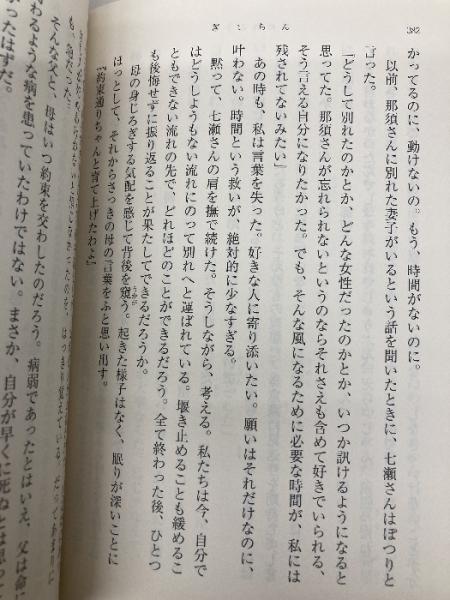 382
ぎんちん
かってるのに、動けないの。もう、時間がないのに。
以前、那須さんに別れた妻子がいるという話を聞いたときに、七瀬さんはぽつりと
言った。
「どうして別れたのかとか、どんな女性だったのかとか、いつか訊けるようになると
思ってた。那須さんが忘れられないというのならそれさえも含めて好きでいられる、
そう言える自分になりたかった。でも、そんな風になるために必要な時間が、私には
残されてないみたい」
あの時も、私は言葉を失った。好きな人に寄り添いたい。願いはそれだけなのに、
叶わない。時間という救いが、絶対的に少なすぎる。
黙って、七瀬さんの肩を撫で続けた。そうしながら、考える。私たちは今、自分で
はどうしようもない流れにのって別れへと運ばれている。堰き止めることも緩めるこ
ともできない流れの先で、どれほどのことができるだろう。全て終わった後、ひとつ
も後悔せずに振り返ることが果たしてできるだろうか。
母の身じろぎする気配を感じて背後を窺う。起きた様子はなく、眠りが深いことに
ほっとして、それからさっきの母の言葉をふと思い出す。
『約束通りちゃんと育て上げたわよ』
そんな父と、母はいつ約束を交わしたのだろう。病弱であったとはいえ、父は命に
わるような病を患っていたわけではない。まさか、自分が早くに死ぬとは思って
なかったはずだ。